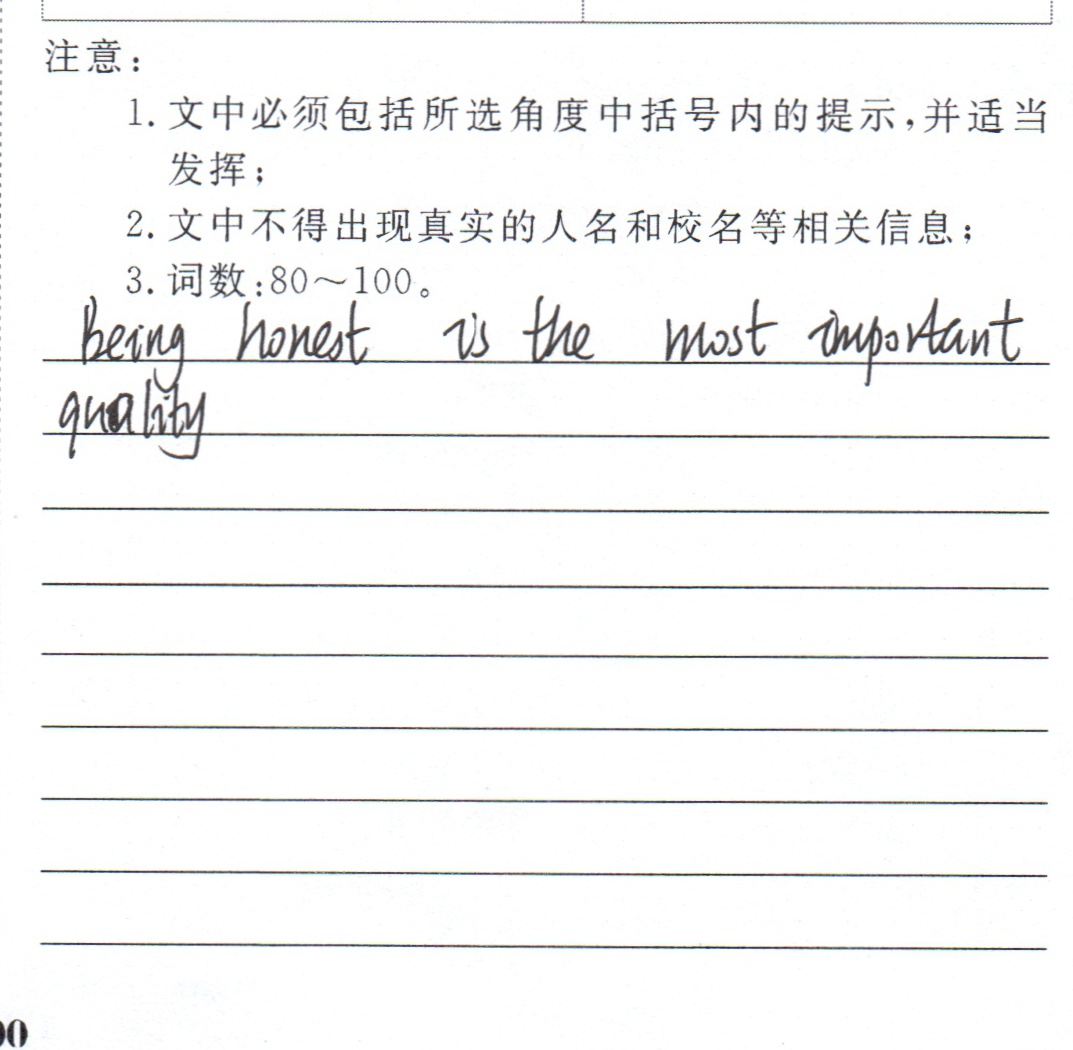 注意：
1. 文中必须包括所选角度中括号内的提示，并适当
发挥；
2. 文中不得出现真实的人名和校名等相关信息；
3. 词数：80～100。
Being honest is the most important
quality